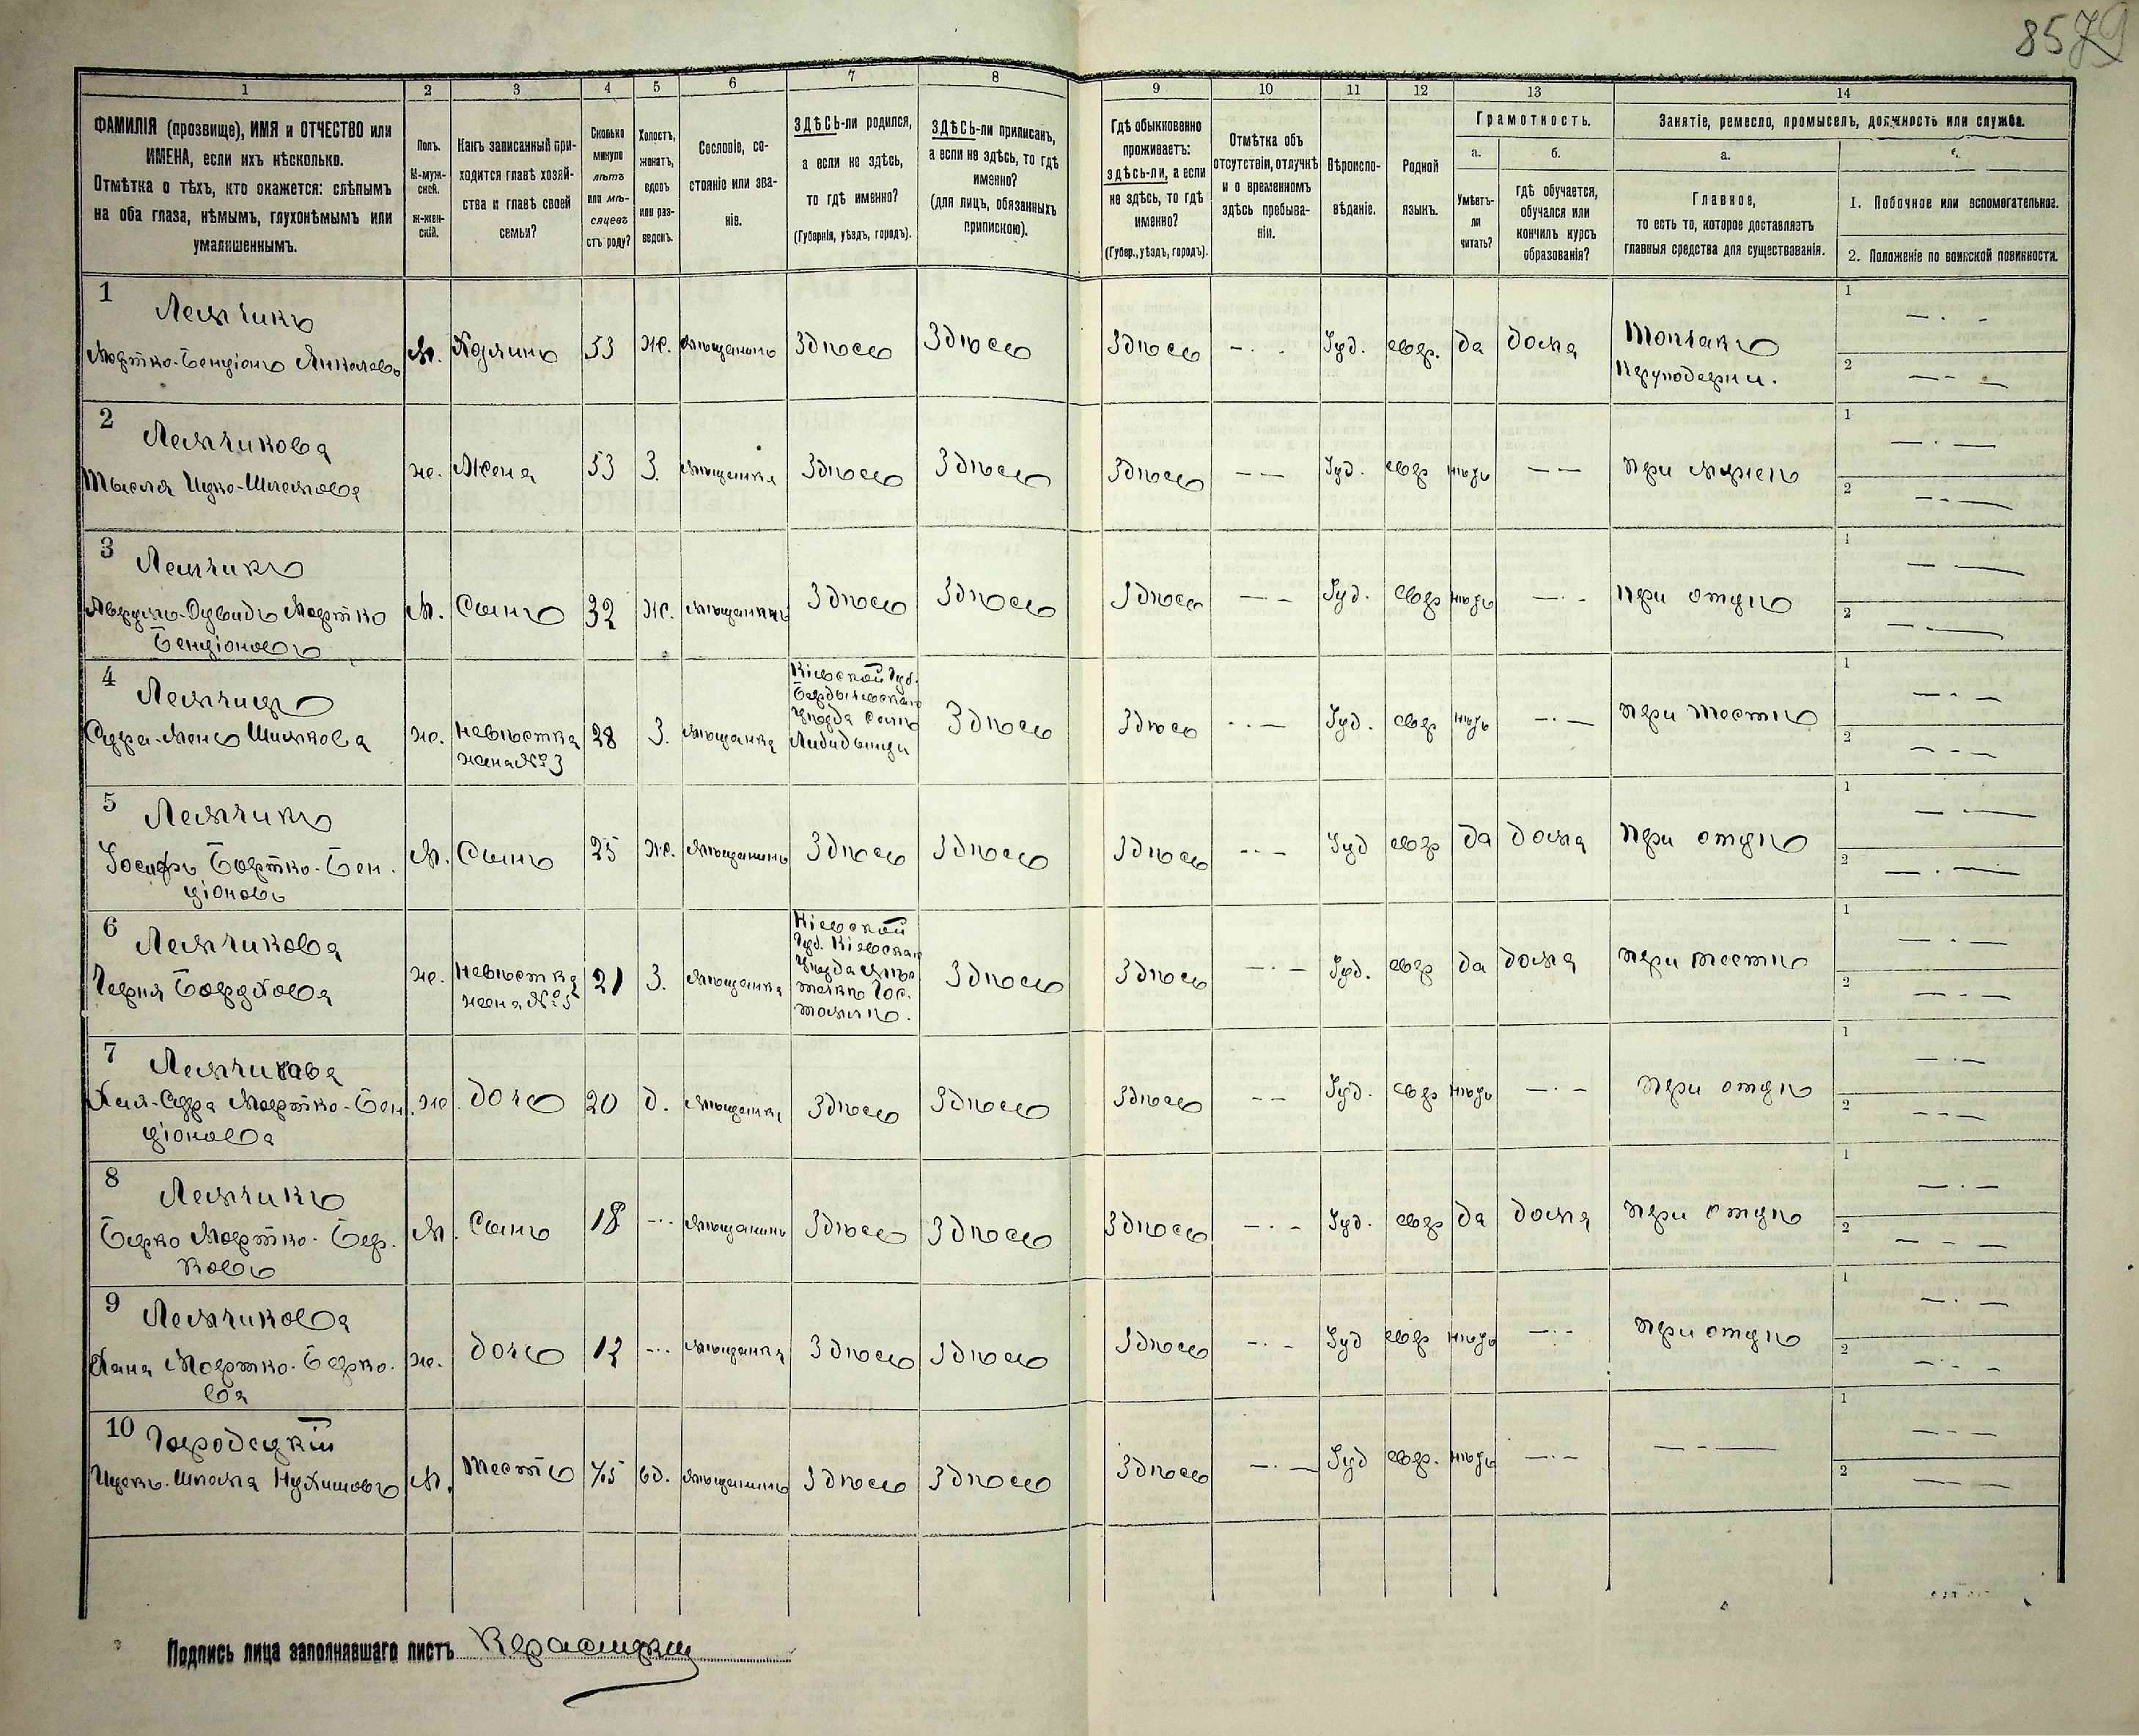 85 79
1 2 3 4 5 6 7 8 9 10 11 12 13 14
ФАМИЛІЯ (прозвище), ИМЯ и ОТЧЕСТВО или
ИМЕНА, если ихъ нѣсколько.
Отмѣтка о тѣхъ, кто окажется: слѣпымъ
на оба глаза, нѣмымъ, глухонѣмымъ или
умалишеннымъ.
Полъ.
М-муж-
ской.
Ж-жен-
скій.
Какъ записанный при-
ходится главѣ хозяй-
ства и главѣ своей
семьи?
Сколько
минуло
лѣтъ
или мѣ-
сяцевъ
отъ роду?
Холостъ,
женатъ,
вдовъ
или раз-
веденъ.
Сословіе, со-
стояніе или зва-
ніе.
ЗДѢСЬ-ли родился,
а если не здѣсь,
то гдѣ именно?
(Губернія, уѣздъ, городъ).
ЗДѢСЬ-ли приписанъ,
а если не здѣсь, то гдѣ
именно?
(для лицъ, обязанныхъ
припискою).
Гдѣ обыкновенно
проживаетъ:
здѣсь-ли, а если
не здѣсь, то гдѣ
именно?
(Губер., уѣздъ, городъ).
Отмѣтка объ
отсутствіи, отлучкѣ
и о временномъ
здѣсь пребыва-
ніи.
Вѣроиспо-
вѣданіе.
Родной
языкъ.
Грамотность.
а.
Умѣетъ-
ли
читать?
б.
гдѣ обучается,
обучался или
кончилъ курсъ
образованія?
Занятіе, ремесло, промыселъ, должность или служба.
а.
Главное,
то есть то, которое доставляетъ
главныя средства для существованія.
1. Побочное или вспомогательное.
2. Положеніе по воинской повинности.
1 Лемчикъ
Мортко-Бенціонъ Янкелевъ М. Хозяинъ 53 Ж. мѣщанинъ Здѣсь Здѣсь Здѣсь — Іуд. евр. да дома Топчакъ
Круподерни.
2 Лемчикова
Ицко-Шлемова ж. Жена 53 З. мѣщанка Здѣсь Здѣсь Здѣсь — Іуд. евр нѣтъ — при мужѣ
3 Лемчикъ
Аврумъ-Дувидъ Мортко
Бенціоновъ М. Сынъ 32 Ж. Здѣсь Здѣсь Здѣсь — Іуд. евр нѣтъ — при отцѣ
4 Лемчикъ
Шимкова ж. Невѣстка
жена № 3 28 З. мѣщанка Кіевской Губ.
Бердичевскаго
Уѣзда
Здѣсь Здѣсь — Іуд. евр нѣтъ — при тестѣ
5 Лемчикъ
Іосифъ Бортко-Бен-
ціоновъ М. Сынъ 25 Ж. мѣщанинъ Здѣсь Здѣсь Здѣсь — Іуд евр да дома при отцѣ
6 Лемчикова
Черня ж. Невѣстка
жена № 5 21 З. мѣщанка Кіевской
Губ. Кіевскаго
Уѣзда мѣс-
течкѣ Гос-
томлѣ. Здѣсь Здѣсь — Іуд. евр да дома при тестѣ
7 Лемчикова
Хая-Сура Мортко-Бен
ціонова ж. дочь 20 д. мѣщанка Здѣсь Здѣсь Здѣсь — Іуд. евр нѣтъ — при отцѣ
8 Лемчикъ
Берко Мортко-Бер-
ковъ М. Сынъ 18 — мѣщанинъ Здѣсь Здѣсь Здѣсь — Іуд. евр да дома при отцѣ
9 Лемчикова
Хана Мортко-Берко-
ва ж. дочь 12 — мѣщанка Здѣсь Здѣсь Здѣсь — Іуд евр нѣтъ — при отцѣ
10 Городецкій
Ицекъ-Шлема Нухимовъ М. Тесть 75 вд. мѣщанинъ Здѣсь Здѣсь Здѣсь — Іуд евр. нѣтъ — —
Подпись лица заполнявшаго листъ